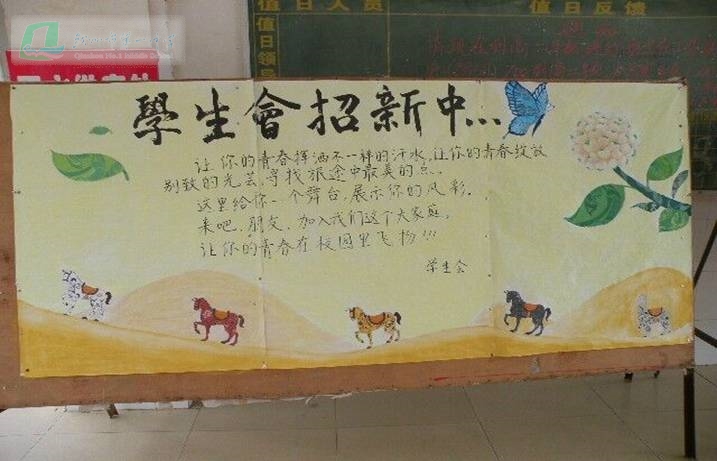 值日人员
值日反馈
值日领导
學生會招新中...
让你的青春挥洒不一样的汗水,让你的青春绽放
别致的光芒,寻找旅途中最美的点.
这里给你一个舞台,展示你的风彩.
来吧,朋友,加入我们这个大家庭,
让你的青春在校园里飞扬!!!
学生会